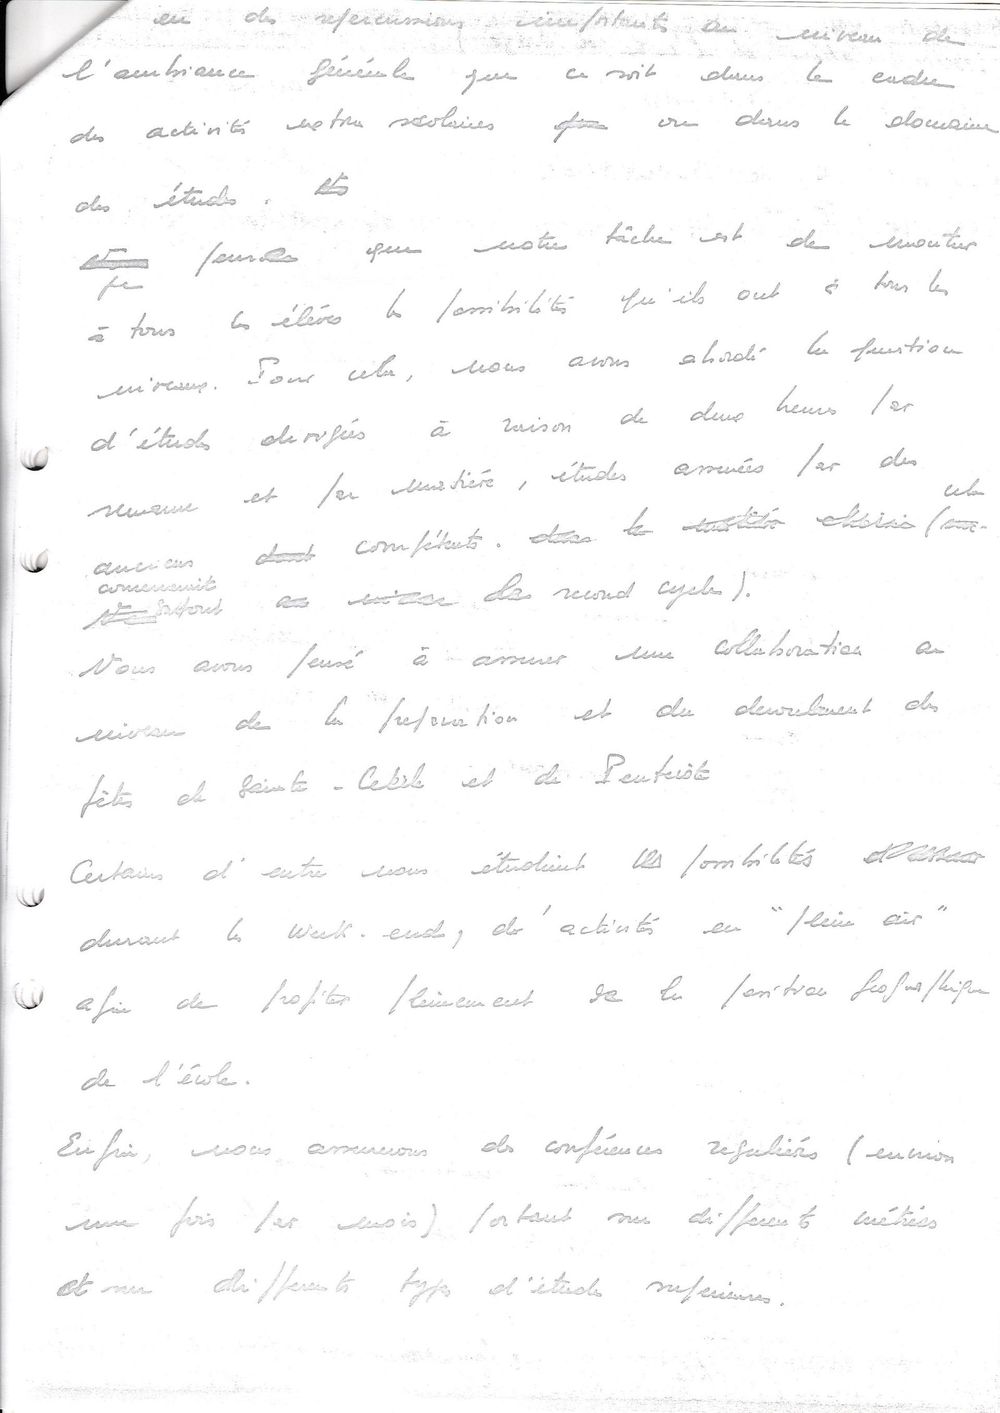 eu des repercussions importants au niveau de
l'ambiance générale que ce soit dans le cadre
des activités extra scolaires ou dans le domaine
des études.
Je pense que notre tâche est de montrer
à tous les élèves les possibilités qu'ils ont à tous les
niveaux. Pour cela, nous avons abordé la question
d'études dirigées à raison de deux heures par
semaine et par matière, études assurées par des
anciens compétents. (cela
concernait surtout le second cycle).
Nous avons pensé à assurer une collaboration au
niveau de la preparation et du deroulement des
fêtes de Sainte-Cécile et de Pentecôte
Certains d'entre nous étudient les possibilités
durant les week-end, d'activités en "plein air"
afin de profiter pleinement de la position geographique
de l'école.
Enfin, nous assurerons des conférences regulières (environ
une fois par mois) portant sur differents métiers
et sur differents types d'études superieures.